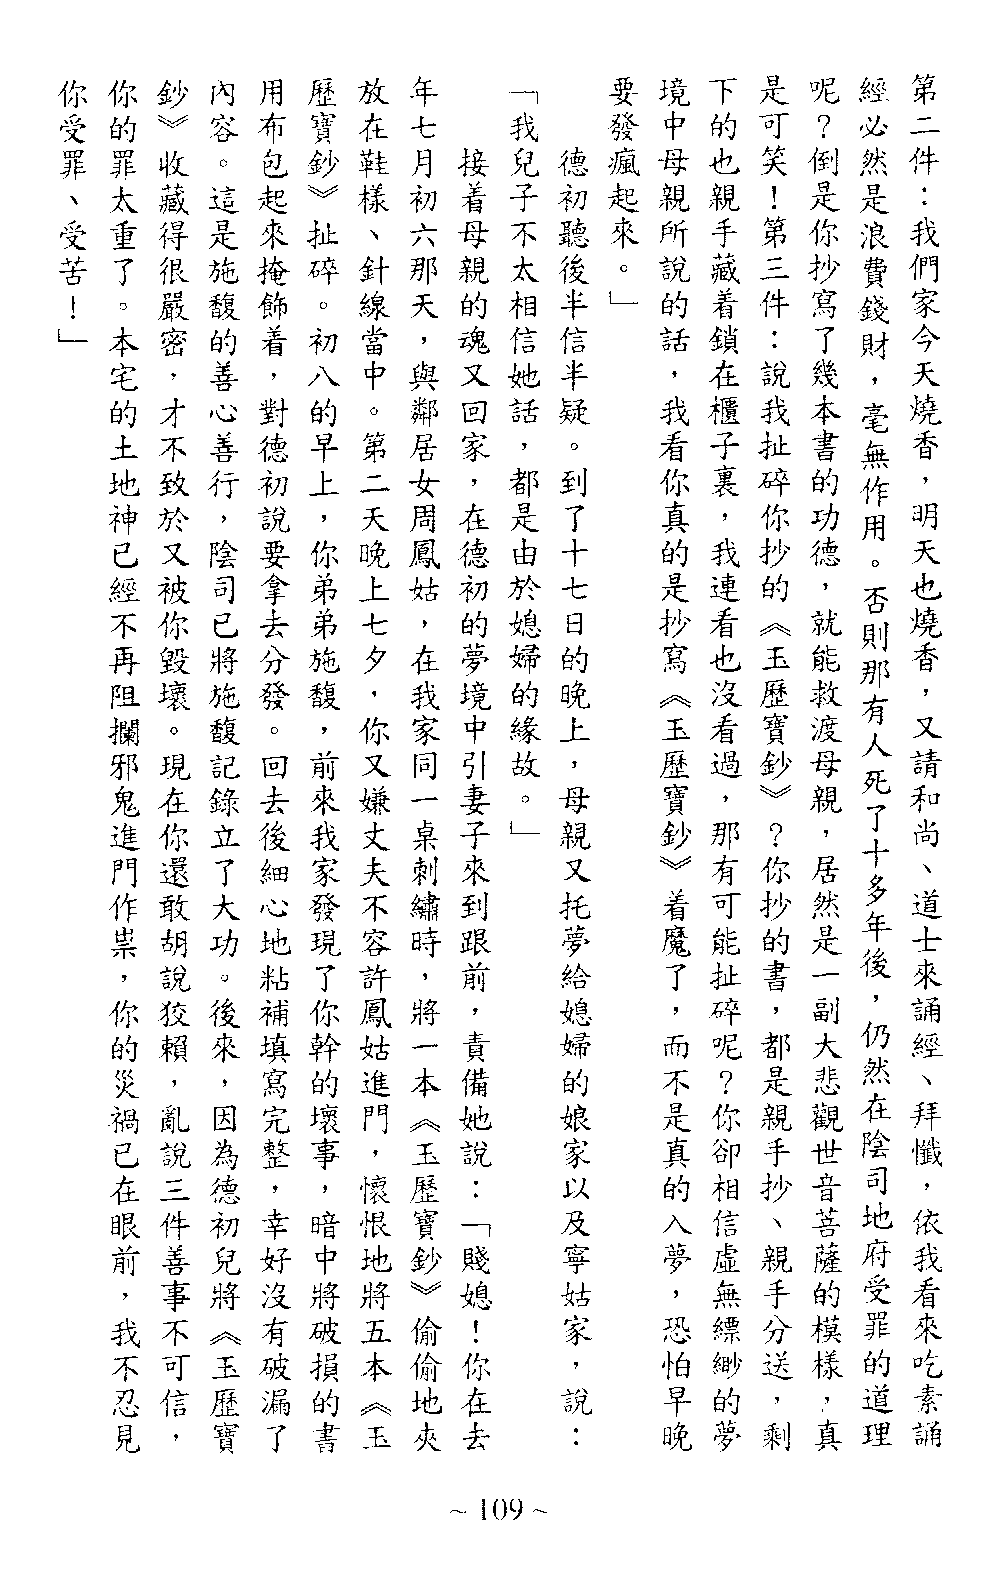 第二件：我們家今天燒香，明天也燒香，又請和尚、道士來誦經、拜懺，依我看來吃素誦
經必然是浪費錢財，毫無作用。否則那有人死了十多年後，仍然在陰司地府受罪的道理
呢？倒是你抄寫了幾本書的功德，就能救渡母親，居然是一副大悲觀世音菩薩的模樣，真
是可笑！第三件：說我扯碎你抄的《玉歷寶鈔》？你抄的書，都是親手抄、親手分送，剩
下的也親手藏着鎖在櫃子裏，我連看也沒看過，那有可能扯碎呢？你卻相信虛無縹緲的夢
境中母親所說的話，我看你真的是抄寫《玉歷寶鈔》着魔了，而不是真的入夢，恐怕早晚
要發瘋起來。」
德初聽後半信半疑。到了十七日的晚上，母親又托夢給媳婦的娘家以及寧姑家，說：
「我兒子不太相信她話，都是由於媳婦的緣故。」
接着母親的魂又回家，在德初的夢境中引妻子來到跟前，責備她說：「賤媳！你在去
年七月初六那天，與鄰居女周鳳姑，在我家同一桌刺繡時，將一本《玉歷寶鈔》偷偷地夾
放在鞋樣、針線當中。第二天晚上七夕，你又嫌丈夫不容許鳳姑進門，懷恨地將五本《玉
歷寶鈔》扯碎。初八的早上，你弟弟施馥，前來我家發現了你幹的壞事，暗中將破損的書
用布包起來掩飾着，對德初說要拿去分發。回去後細心地粘補填寫完整，幸好沒有破漏了
內容。這是施馥的善心善行，陰司已將施馥記錄立了大功。後來，因為德初兒將《玉歷寶
鈔》收藏得很嚴密，才不致於又被你毀壞。現在你還敢胡說狡賴，亂說三件善事不可信，
你的罪太重了。本宅的土地神已經不再阻攔邪鬼進門作祟，你的災禍已在眼前，我不忍見
你受罪、受苦！」
~ 109 ~